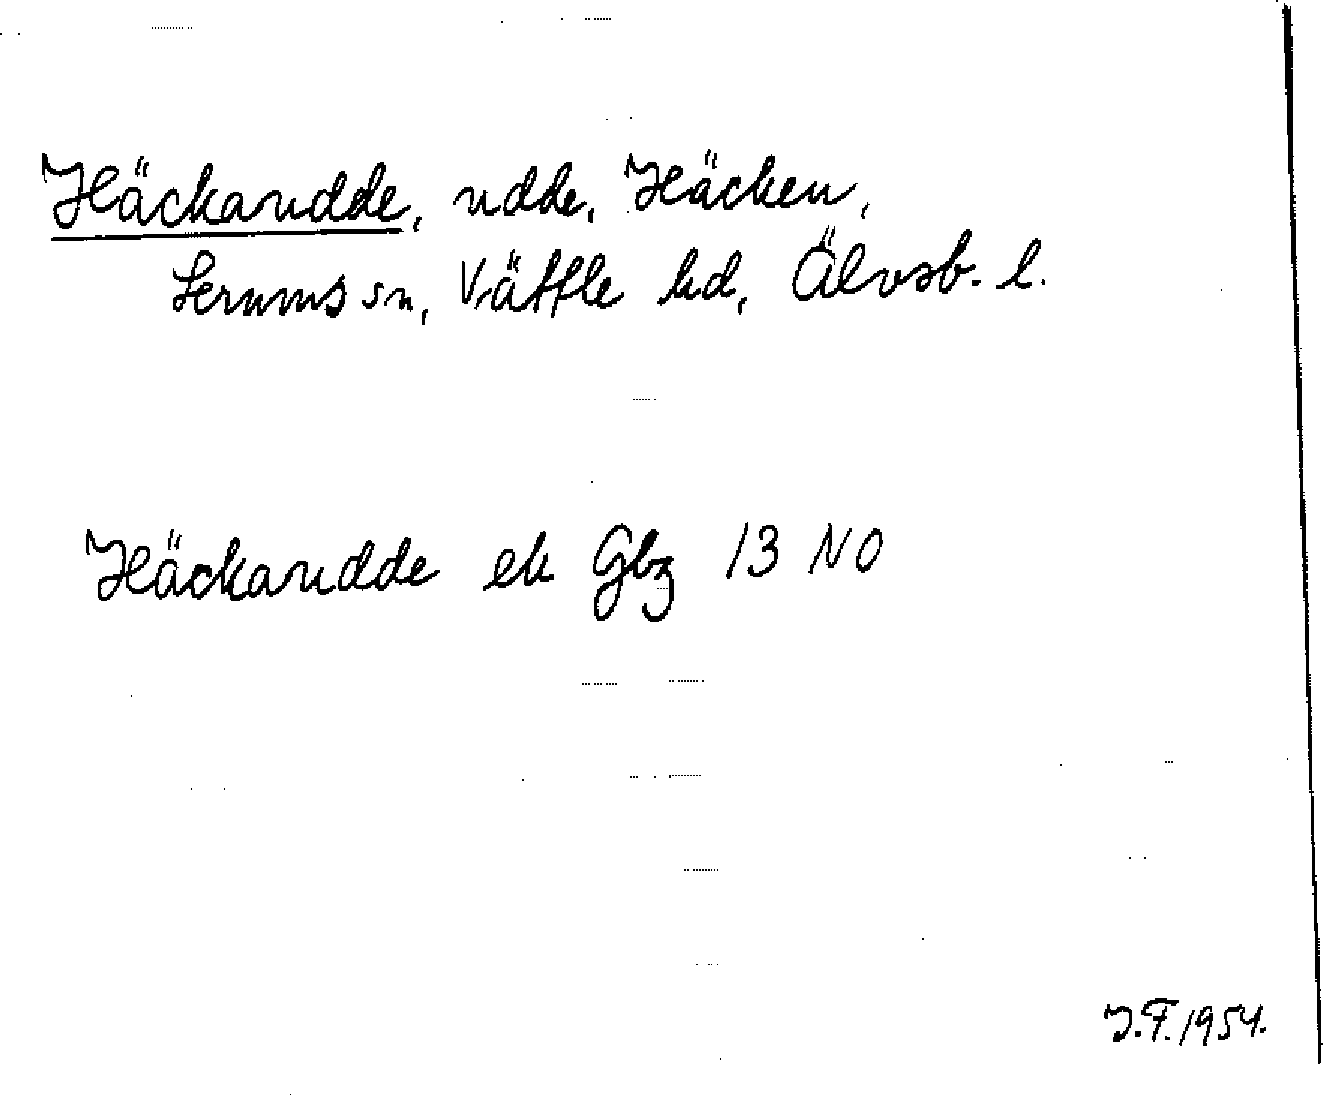 Häckaudde, udde, Häcken,
Lerums sn, Vättle hd, Älvsb. l.
Häckaudde ek Gbz 13 NO
J.F. 1954.